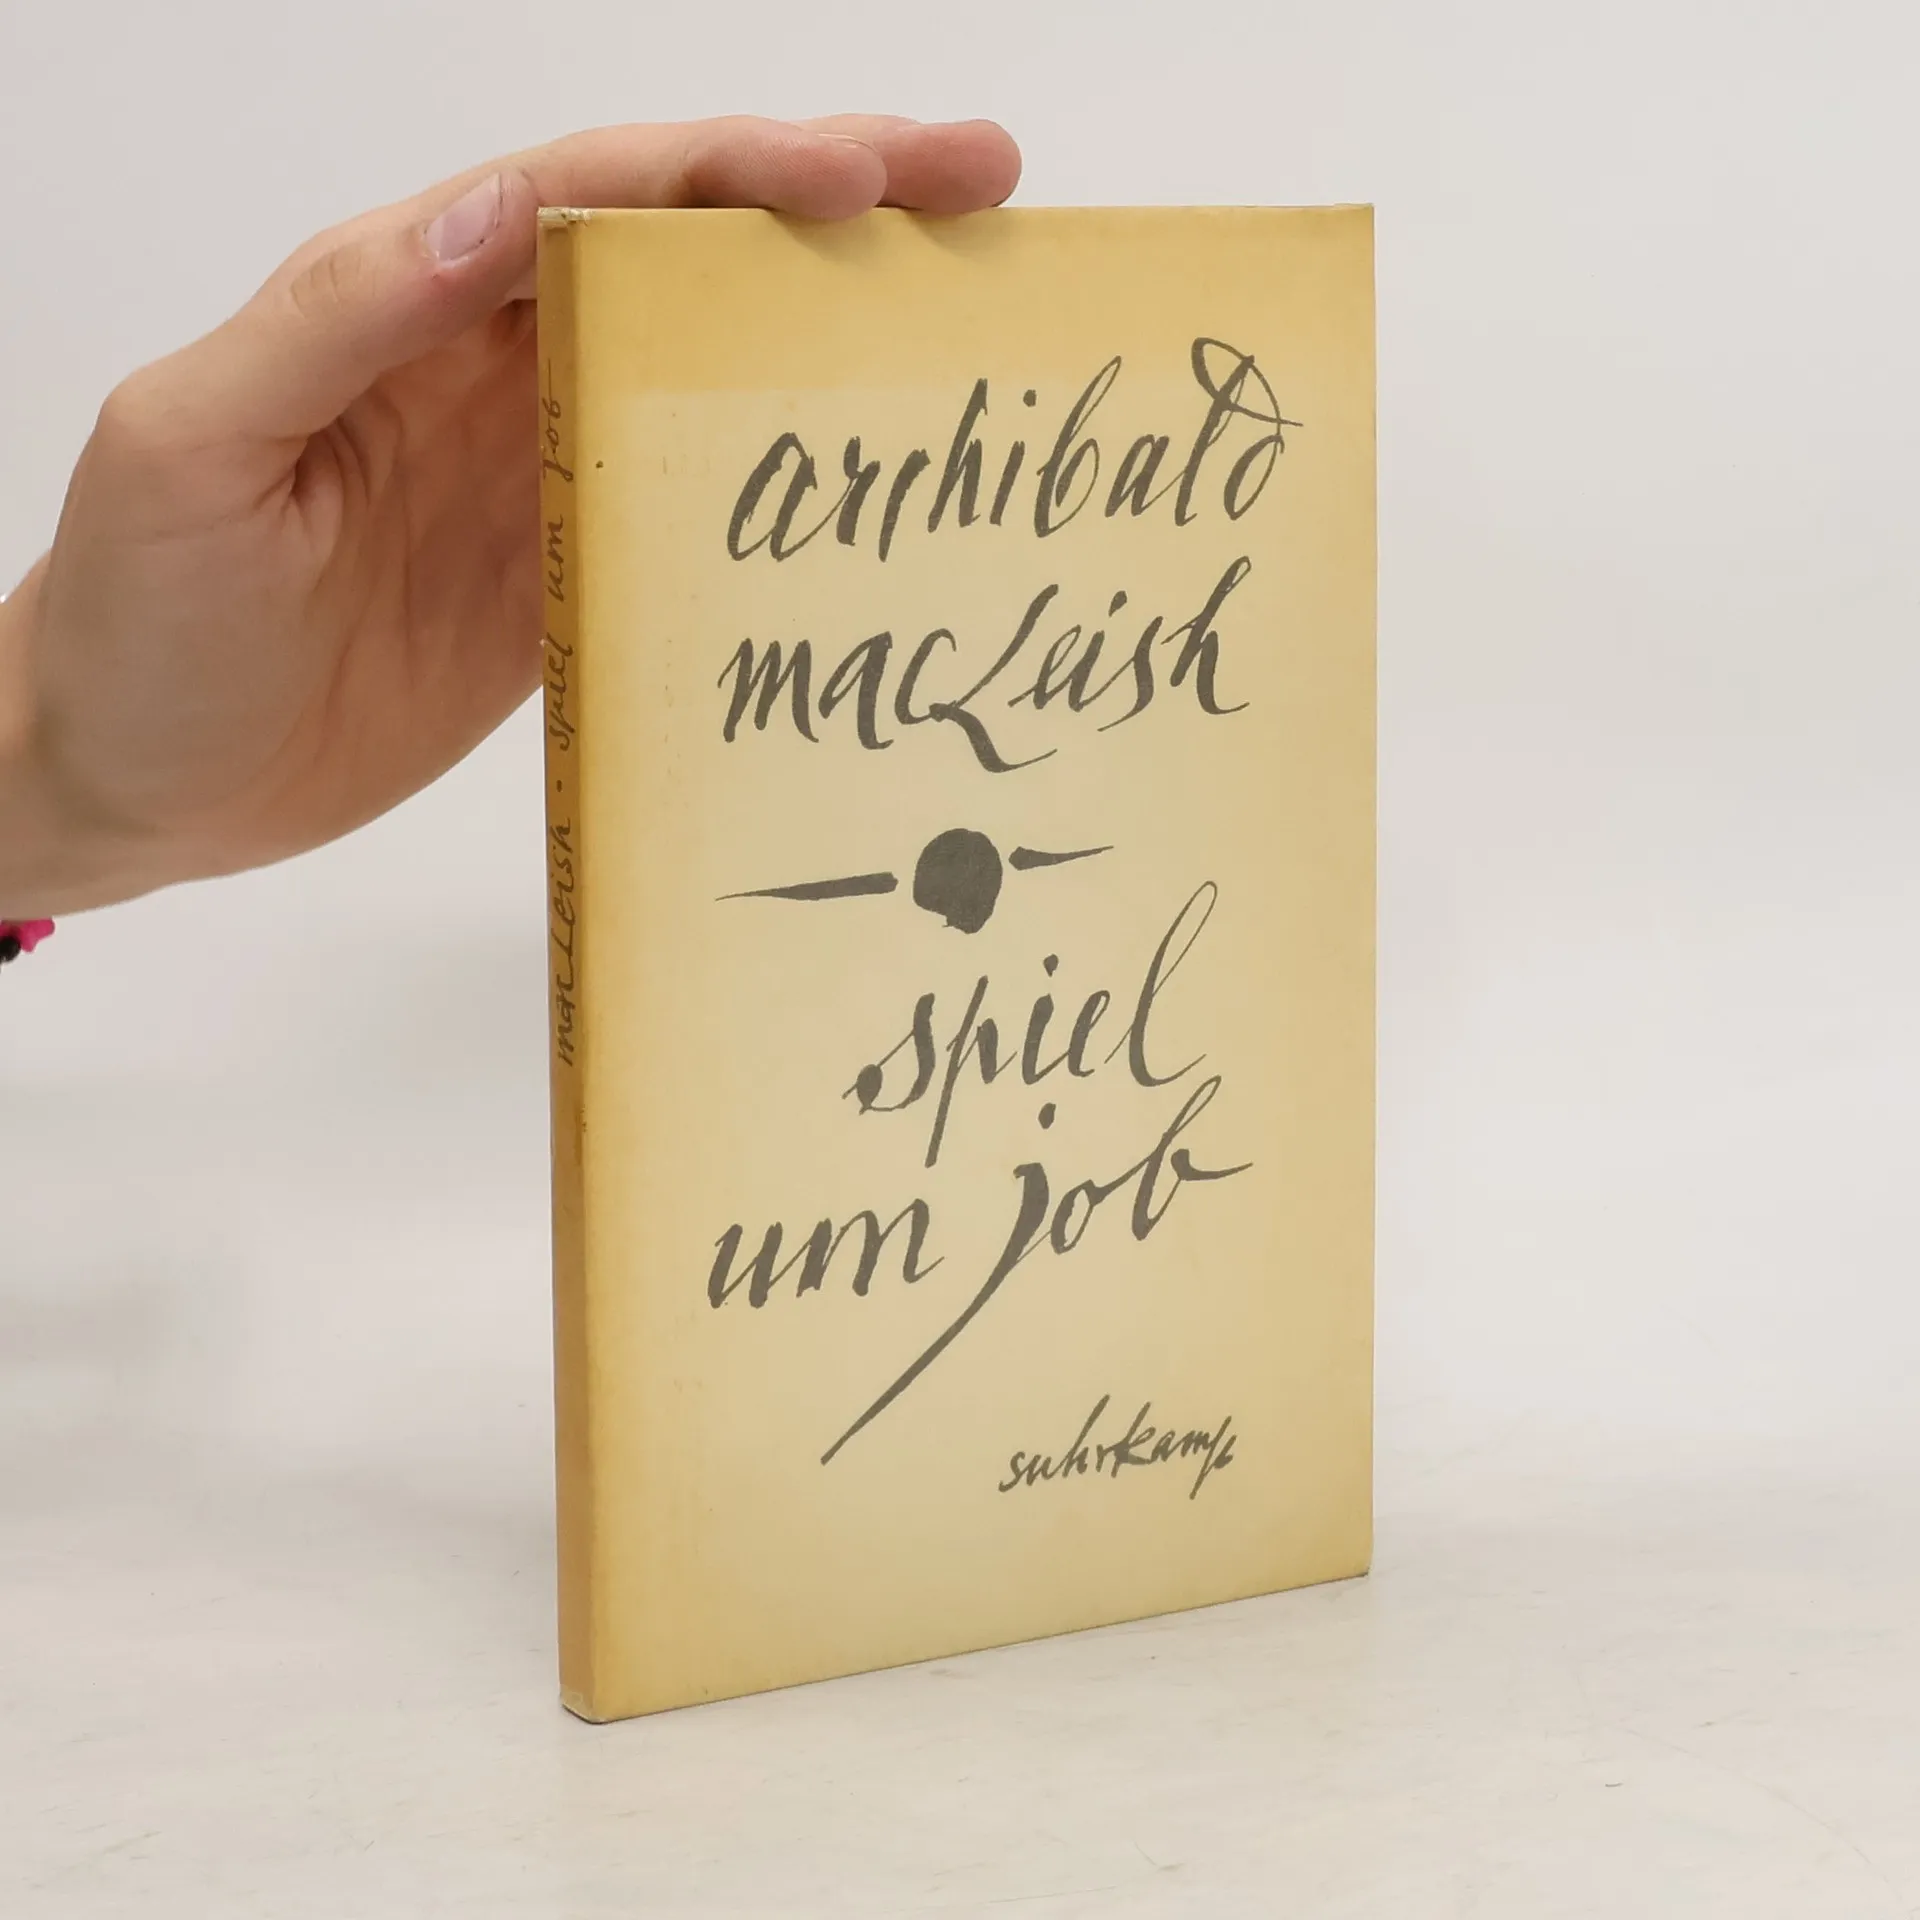 archibald
macLeish
spiel
um job
suhrkamp
macLeish · spiel um job